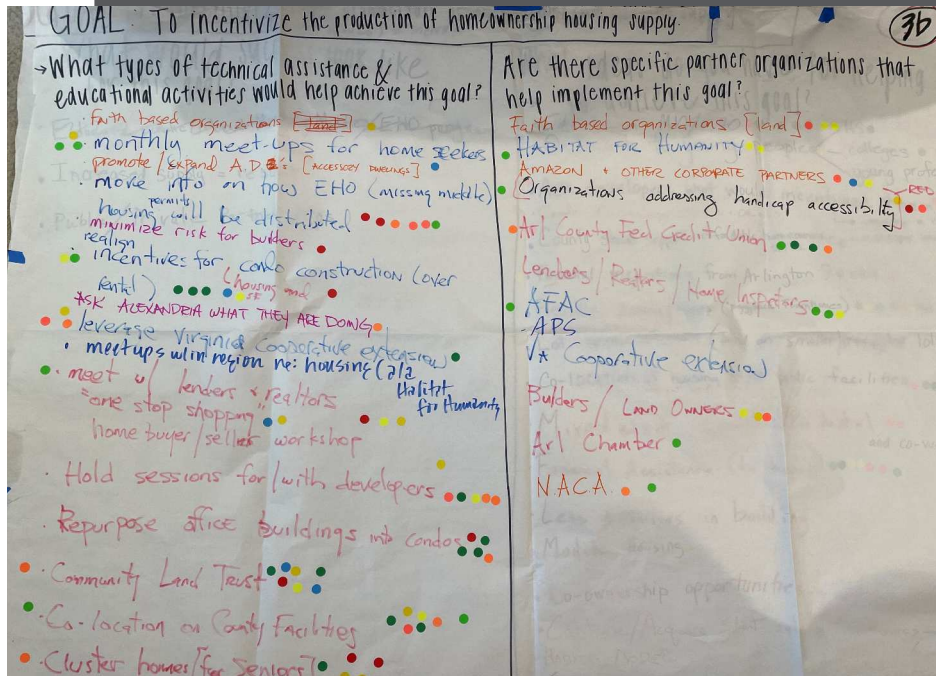 GOAL: To incentivize the production of homeownership housing supply.
3b
→What types of technical assistance &
educational activities would help achieve this goal?
· faith based organizations [land]
· monthly meet-ups for home seekers
· promote/expand A.D. [ACCESSORY DWELLINGS]
· move info on how EHO (missing middle)
permits
housing will be distributed
minimize risk for builders
realign
· incentives for condo construction (over
rental) (housing and
ASK ALEXANDRIA WHAT THEY ARE DOING
· leverage Virginia Cooperative extension
· meetups w/in region re: housing (ala
Habitat
for Humanity
· meet w/ lenders & realtors
"one stop shopping"
home buyer/seller workshop
· Hold sessions for/with developers
· Repurpose office buildings into condos
· Community Land Trust
· Co-location on County Facilities
· Cluster homes [for seniors]
Are there specific partner organizations that
help implement this goal?
Faith based organizations [land]
HABITAT FOR HUMANITY
AMAZON + OTHER CORPORATE PARTNERS
RED
Organizations addressing handicap accessibilty
Arl County Fed Credit Union
Lenders/Realtors/Home Inspectors
AFAC
-APS
VA Cooperative extension
Builders/LAND OWNERS
Arl Chamber
N.A.C.A.